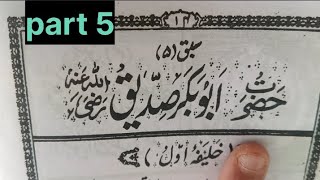 part 5
۱۴
سبق (۵)
حضرت ابوبکر صدیق رضی اللہ عنہ
( خلیفہ اول )